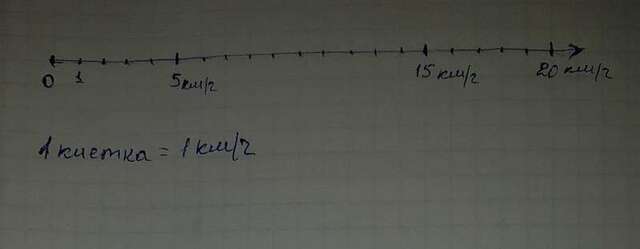 0 1 5км/г 15 км/г 20 км/г
1 клетка = 1 км/г